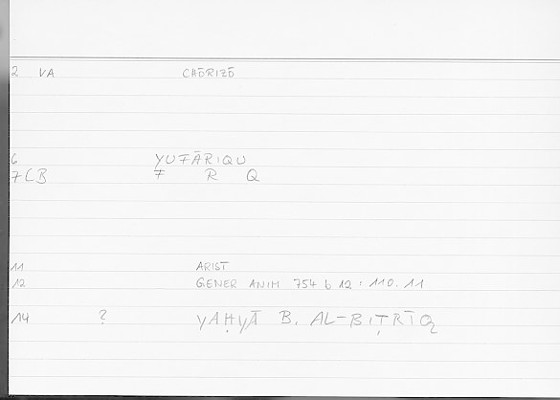 2 VA CHŌRIZŌ
6 YUFĀRIQU
7CB F R Q
11 ARIST
12 GENER ANIM 754 b 12 : 110.11
14 ? YAḤYĀ B. AL-BIṬRĪQ